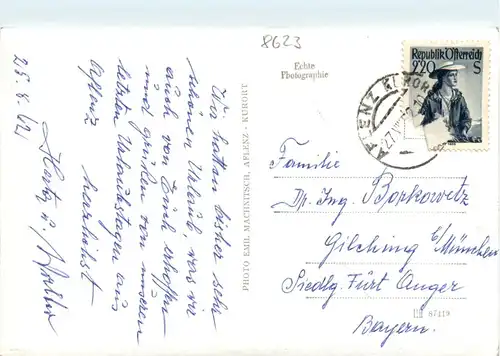 8623
Echte
Photographie
Republik Österreich
2·20
S
AFLENZ KURORT
25. 8. 62
Wir hatten bisher sehr
schönen Urlaub, was wir
auch von Euch erhoffen
und grüßen von unseren
letzten Urlaubstagen aus
Aflenz herzlichst
PHOTO EMIL MACHNITSCH, AFLENZ - KURORT
Familie
Dr. Ing. Borkowetz
Gilching b/München
Siedlg. Fürt Anger
Bayern.
87119